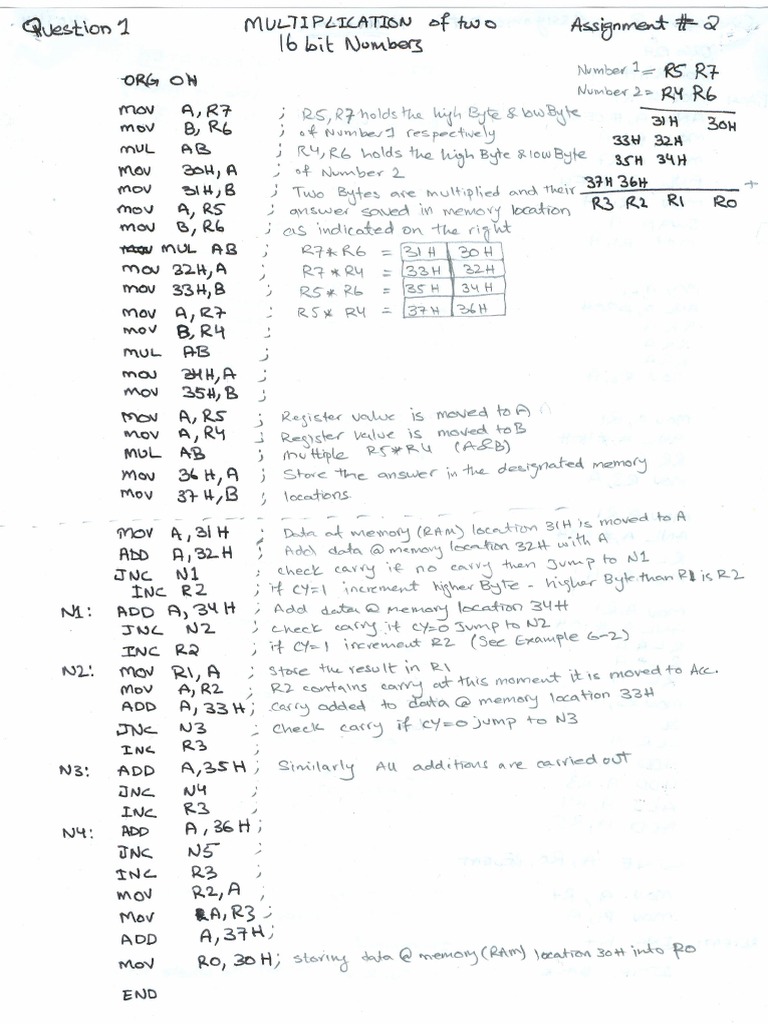 Question 1 MULTIPLICATION of two Assignment # 2
16 bit Numbers
Number 1 = R5 R7
ORG 0H
Number 2 = R4 R6
MOV A, R7 ; R5, R7 holds the high Byte & low Byte
31H 30H
MOV B, R6 ; of Number 1 respectively
33H 32H
MUL AB ; R4, R6 holds the high Byte & low Byte
35H 34H
MOV 30H, A ; of Number 2
37H 36H +
MOV 31H, B ; Two Bytes are multiplied and their
R3 R2 R1 R0
MOV A, R5 ; answer saved in memory location
MOV B, R6 ; as indicated on the right
MUL AB ; R7*R6 = 31H 30H
MOV 32H, A ; R7*R4 = 33H 32H
MOV 33H, B ; R5*R6 = 35H 34H
MOV A, R7 ; R5*R4 = 37H 36H
MOV B, R4 ;
MUL AB ;
MOV 34H, A ;
MOV 35H, B ;
MOV A, R5 ; Register value is moved to A
MOV A, R4 ; Register value is moved to B
MUL AB ; multiple R5*R4 (A&B)
MOV 36H, A ; Store the answer in the designated memory
MOV 37H, B ; locations
MOV A, 31H ; Data at memory (RAM) location 31H is moved to A
ADD A, 32H ; Add data @ memory location 32H with A
JNC N1 ; check carry if no carry then Jump to N1
INC R2 ; if CY=1 increment higher Byte - higher Byte than R1 is R2
N1: ADD A, 34H ; Add data @ memory location 34H
JNC N2 ; check carry if CY=0 Jump to N2
INC R2 ; if CY=1 increment R2 (See Example 6-2)
N2: MOV R1, A ; store the result in R1
MOV A, R2 ; R2 contains carry at this moment it is moved to Acc.
ADD A, 33H ; carry added to data @ memory location 33H
JNC N3 ; check carry if CY=0 jump to N3
INC R3 ;
N3: ADD A, 35H ; Similarly All additions are carried out
JNC N4
INC R3 ;
N4: ADD A, 36H ;
JNC N5 ;
INC R3 ;
MOV R2, A ;
MOV A, R3 ;
ADD A, 37H ;
MOV R0, 30H ; storing data @ memory (RAM) location 30H into R0
END